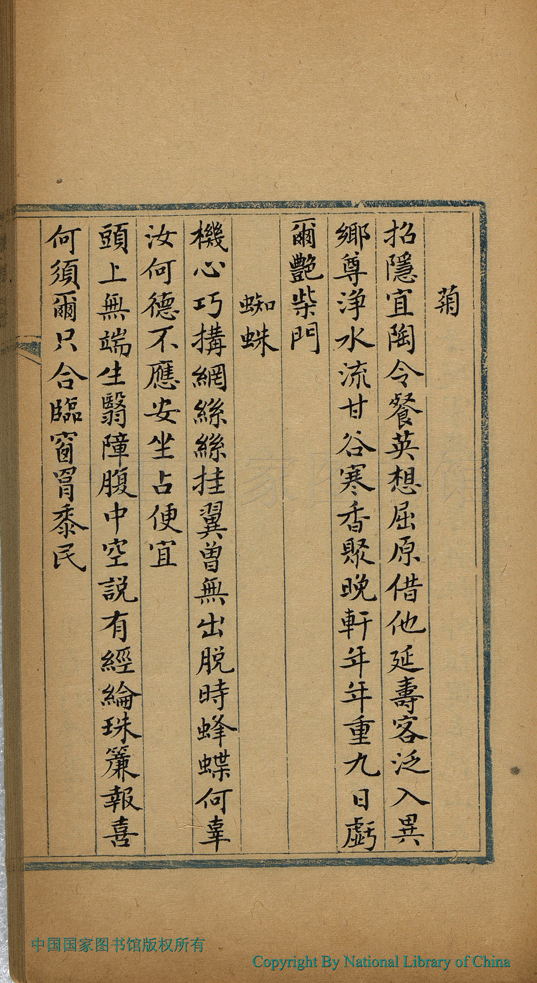 菊
招隱宜陶令餐英想屈原借他延壽客泛入異
鄉尊淨水流甘谷寒香聚晚軒年年重九日虧
爾艷柴門
蜘蛛
機心巧搆網絲絲挂翼曾無出脱時蜂蝶何辜
汝何德不應安坐占便宜
頭上無端生翳障腹中空説有經綸珠簾報喜
何須爾只合臨窗罥黍民
中国国家图书馆版权所有
Copyright By National Library of China